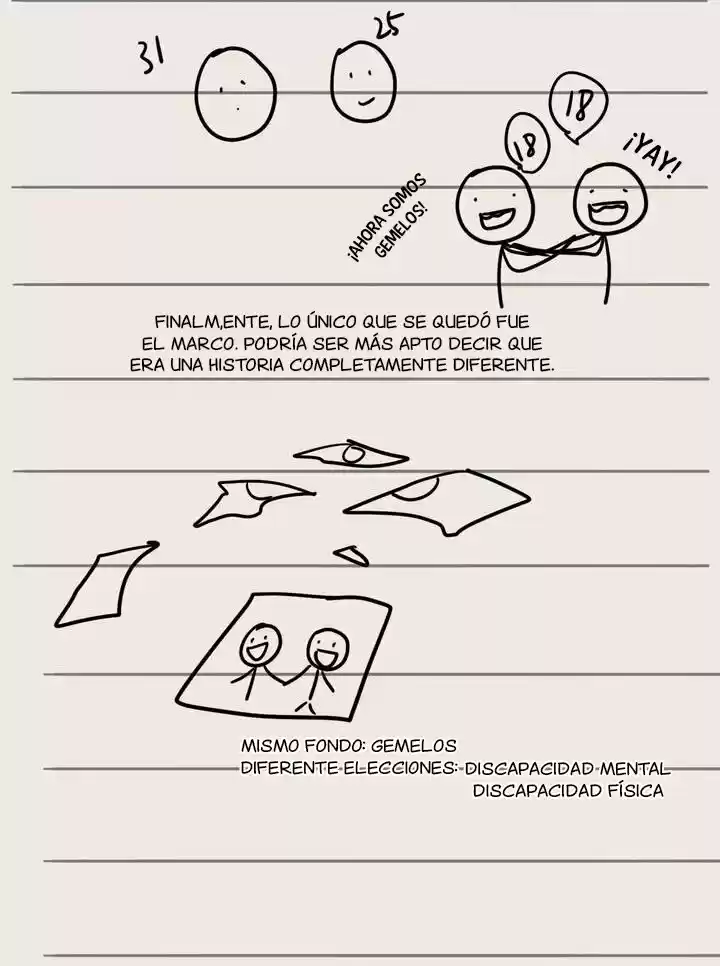 31
25
18
18
¡YAY!
¡AHORA SOMOS
GEMELOS!
FINALM,ENTE, LO ÚNICO QUE SE QUEDÓ FUE
EL MARCO. PODRÍA SER MÁS APTO DECIR QUE
ERA UNA HISTORIA COMPLETAMENTE DIFERENTE.
MISMO FONDO: GEMELOS
DIFERENTE ELECCIONES: DISCAPACIDAD MENTAL
DISCAPACIDAD FÍSICA